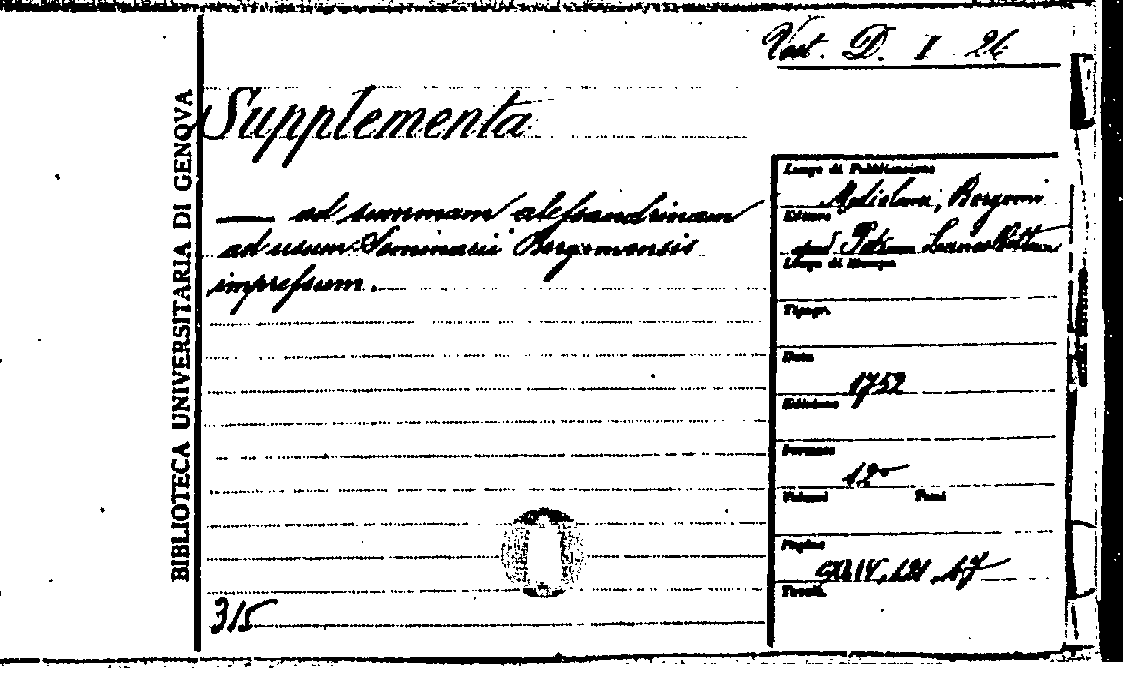 D. I 26
BIBLIOTECA UNIVERSITARIA DI GENOVA
Supplementa
— ad summam alessandrinam
ad usum Seminarii Bergomensis
impressum.
315
Luogo di Pubblicazione
Mediolani, Bergomi
Editore
apud
Luogo di Stampa
Tipogr.
Data
1752
Edizione
Formato
12°
Volumi Tomi
Pagine